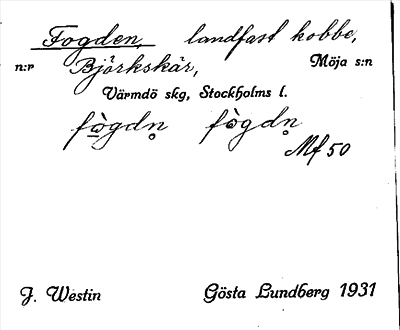 Fogden, landfast kobbe,
n:r Björkskär, Möja s:n
Värmdö skg, Stockholms l.
fò̱gdn̥ fò̱gdn̥
Mf 50
J. Westin Gösta Lundberg 1931